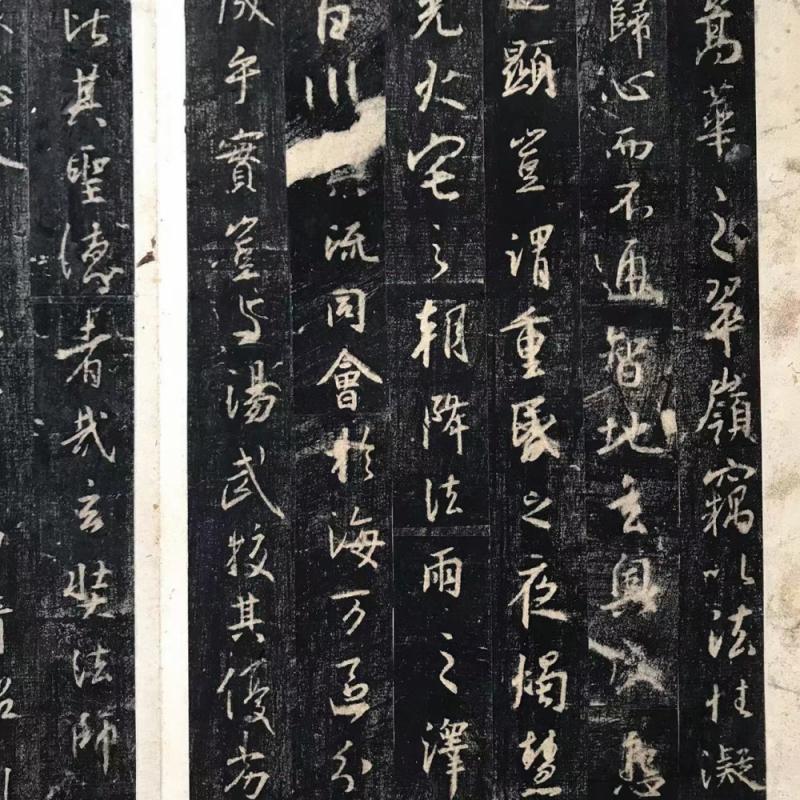 嵩華之翠嶺竊以法性凝
歸心而不通智地玄奧感懇
遂顯豈謂重昏之夜燭慧
光火宅之朝降法雨之澤
百川流同會於海万區分
成乎實豈与湯武校其優劣
比其聖德者哉玄奘法師